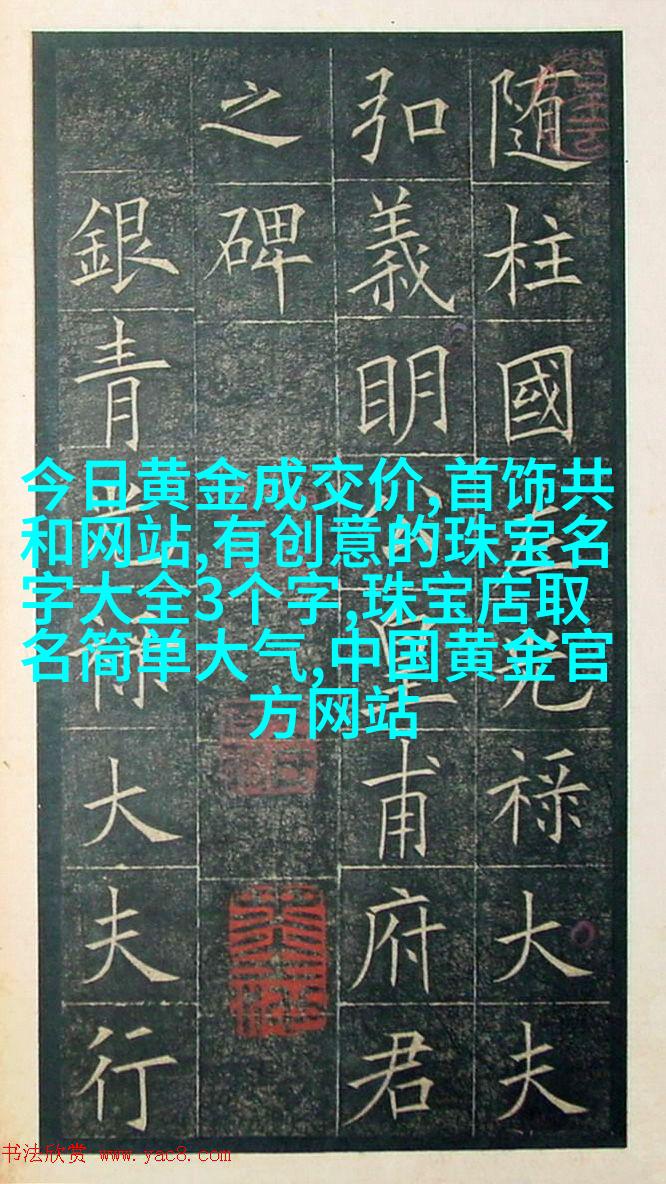 随柱國左光禄大夫
弘義明公皇甫府君
之碑
銀青光禄大夫行
今日黄金成交价,首饰共
和网站,有创意的珠宝名
字大全3个字,珠宝店取
名简单大气,中国黄金官
方网站
书法欣赏 www.yac8.com